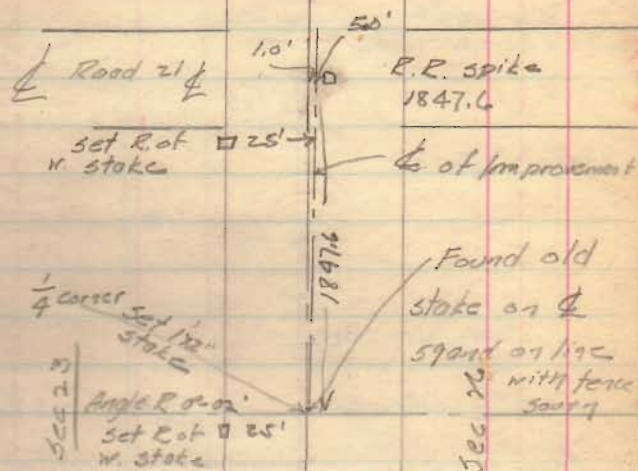 5.0'
1.0'
℄ Road 21 ℄
R.R. spike
1847.6
set R.of □ 25'
w. stake
℄ of Improvement
1847.6
Found old
stake on ℄
and on line
with fence
South
1/4 corner
set 1"x2"
stake
Sec 23
Angle R 0°-02'
set R of □ 25'
w. stake
Sec